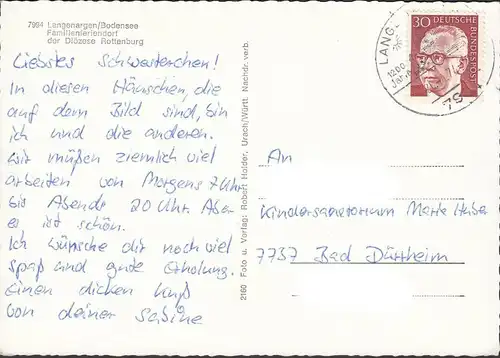 7994 Langenargen/Bodensee
Familienferiendorf
der Diözese Rottenburg
Liebstes Schwesterchen!
In diesen Häuschen, die
auf dem Bild sind, bin
ich und die anderen.
Wir müßen ziemlich viel
arbeiten von Morgens 7 Uhr
bis Abends 20 Uhr. Aber
es ist schön.
Ich wünsche dir noch viel
spaß und gute Erholung.
Einen dicken Kuß
von deiner Sabine
2160 Foto u. Verlag: Robert Holder, Urach/Württ. Nachdr. verb.
LANG
1200
Jahre
30 DEUTSCHE
BUNDESPOST
An
Kindersanatorium Marie Huber
7737 Bad Dürrheim